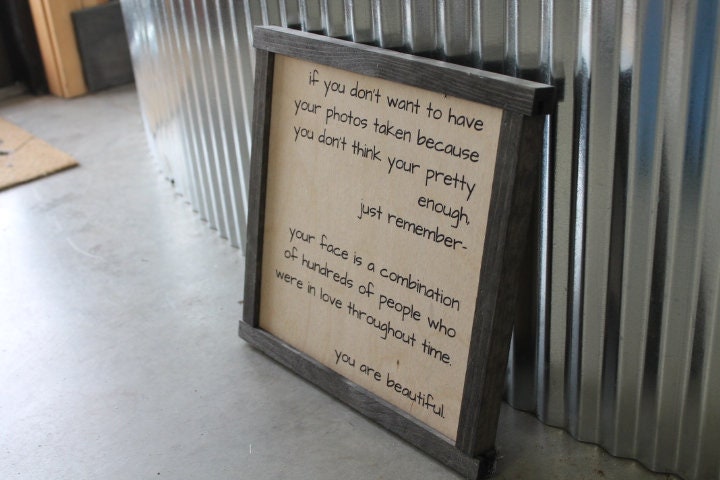 if you don't want to have
your photos taken because
you don't think your pretty
enough,
just remember-
your face is a combination
of hundreds of people who
were in love throughout time.
you are beautiful.